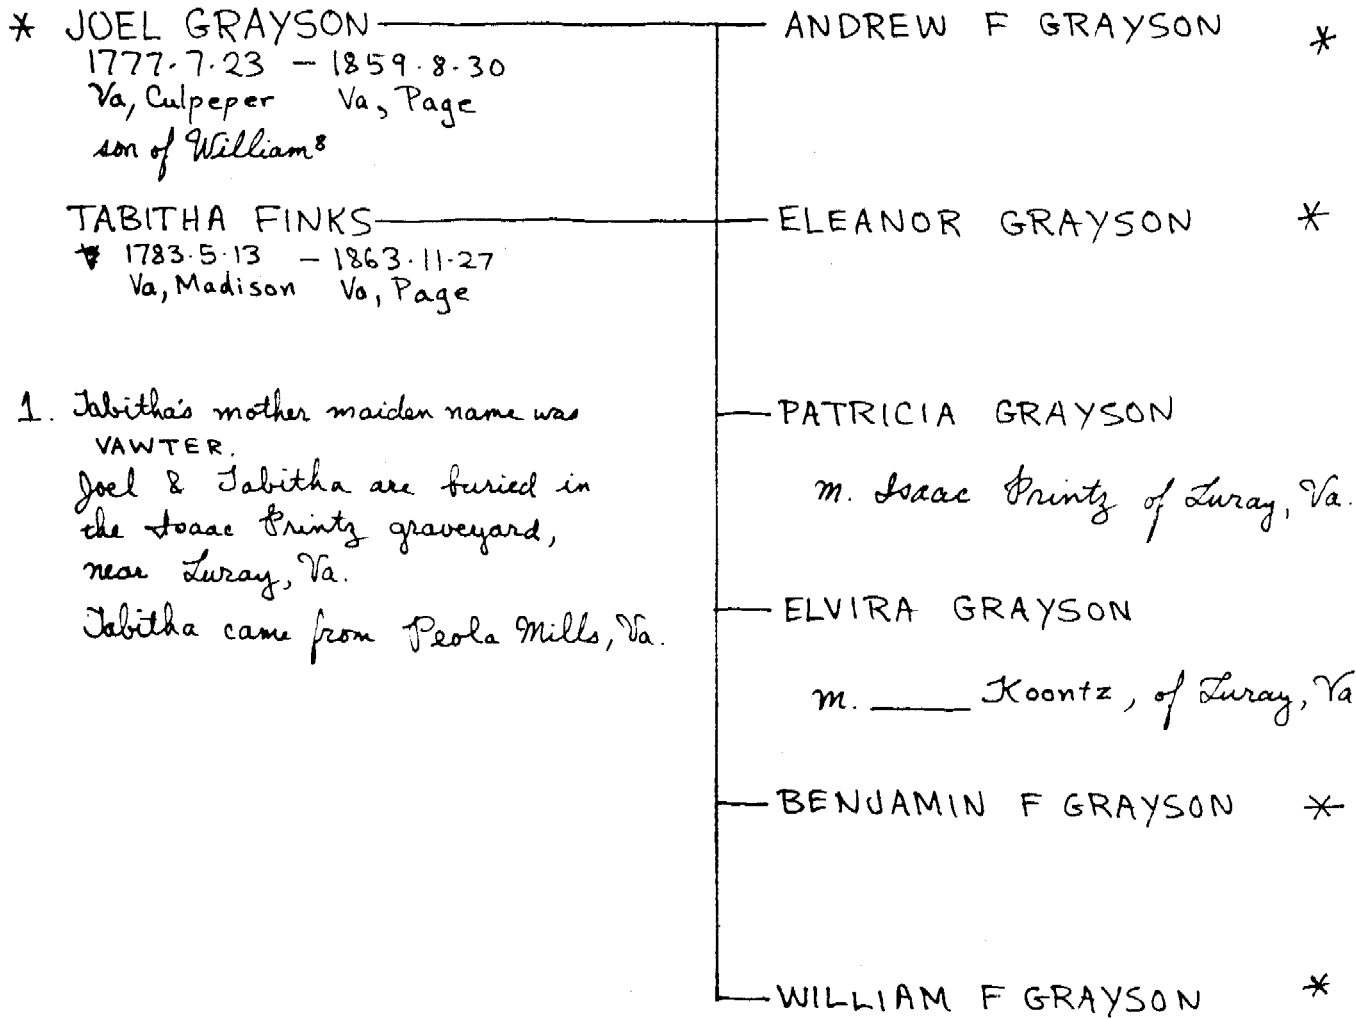 * JOEL GRAYSON
1777.7.23 – 1859.8.30
Va, Culpeper Va, Page
son of William⁸
TABITHA FINKS
1783.5.13 – 1863.11.27
Va, Madison Va, Page
1. Tabitha's mother maiden name was
VAWTER.
Joel & Tabitha are buried in
the Isaac Printz graveyard,
near Luray, Va.
Tabitha came from Peola Mills, Va.
ANDREW F GRAYSON *
ELEANOR GRAYSON *
PATRICIA GRAYSON
m. Isaac Printz of Luray, Va.
ELVIRA GRAYSON
m. ____ Koontz, of Luray, Va
BENJAMIN F GRAYSON *
WILLIAM F GRAYSON *